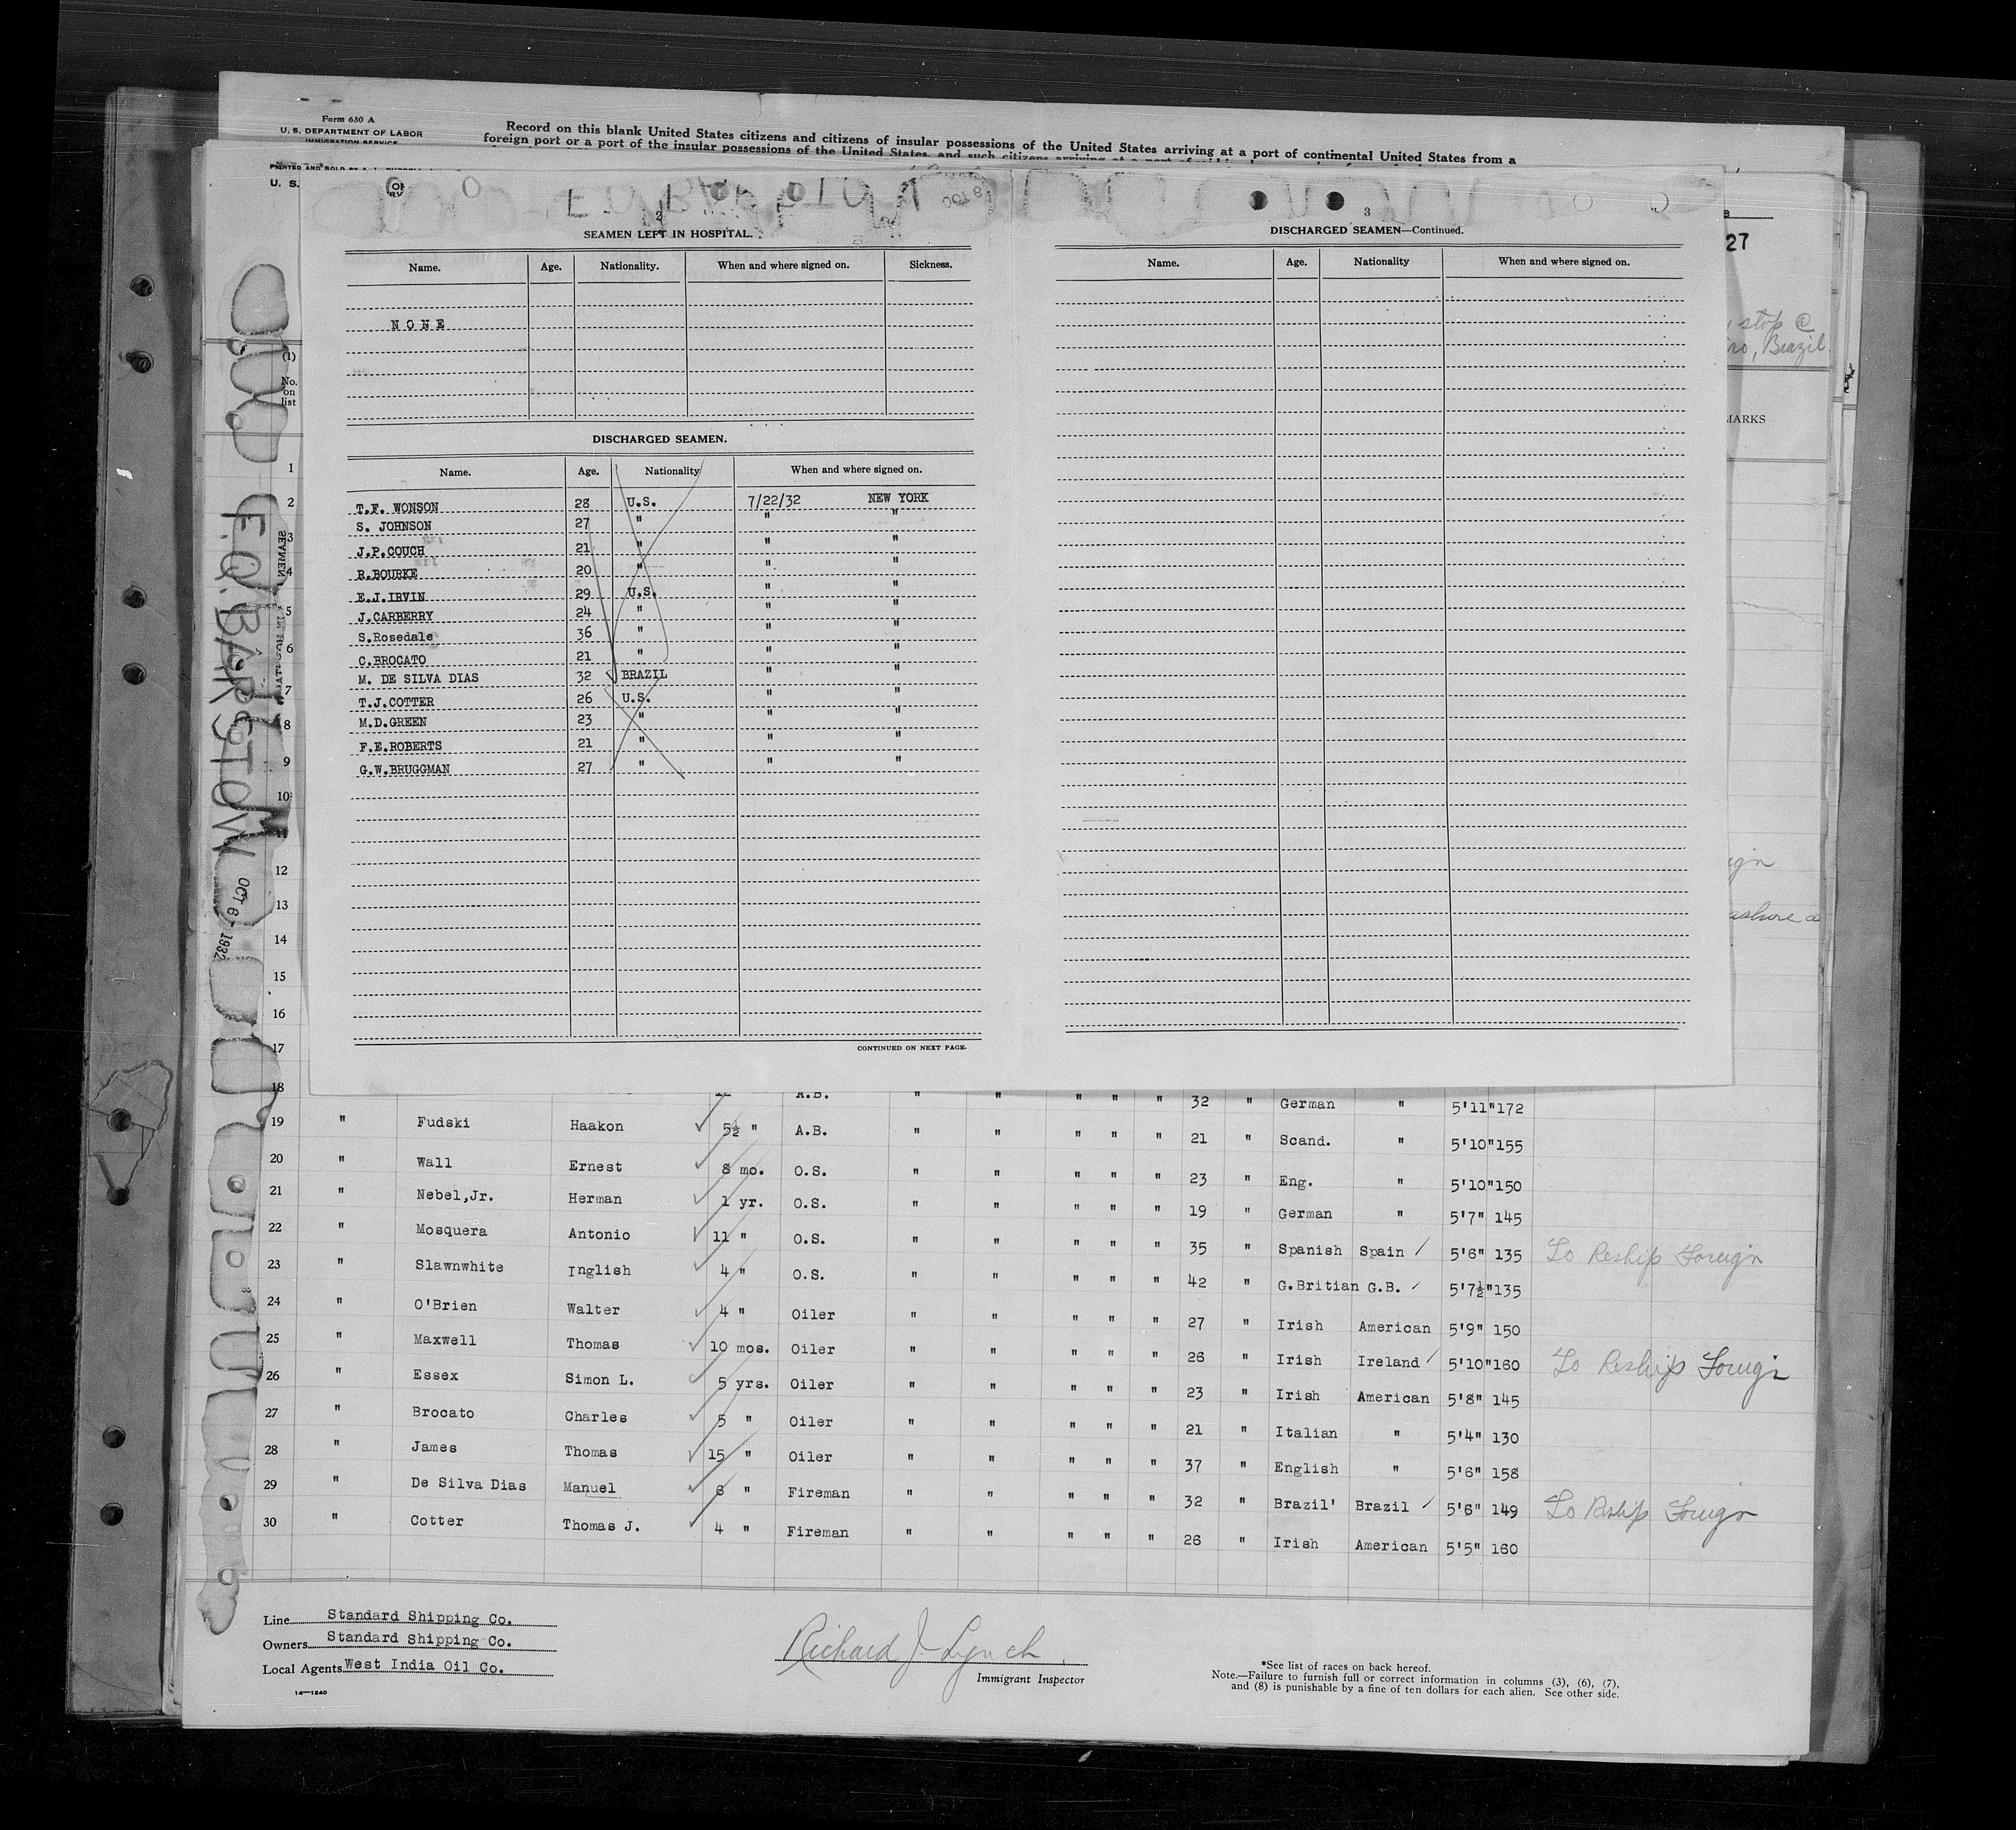 Form 630 A
U. S. DEPARTMENT OF LABOR
IMMIGRATION SERVICE
Record on this blank United States citizens and citizens of insular possessions of the United States arriving at a port of continental United States from a
foreign port or a port of the insular possessions of the United States, and such citizens arriving at a port of
PRINTED AND SOLD BY
U. S.
27
stop @
Brazil.
MARKS
2
SEAMEN LEFT IN HOSPITAL.
Name. Age. Nationality. When and where signed on. Sickness.
NONE
DISCHARGED SEAMEN.
Name. Age. Nationality When and where signed on.
T.F. WONSON 28 U.S. 7/22/32 NEW YORK
S. JOHNSON 27 " " "
J.P.COUCH 21 " " "
R.BOURKE 20 " " "
E.J.IRVIN 29 U.S. " "
J.CARBERRY 24 " " "
S.Rosedale 36 " " "
C.BROCATO 21 " " "
M. DE SILVA DIAS 32 BRAZIL " "
T.J.COTTER 26 U.S. " "
M.D.GREEN 23 " " "
F.E.ROBERTS 21 " " "
G.W.BRUGGMAN 27 " " "
CONTINUED ON NEXT PAGE.
3
DISCHARGED SEAMEN—Continued.
Name. Age. Nationality When and where signed on.
F.Q.BARSTOW
OCT 6 - 1932
ashore
(1)
No.
on
list
1
2
3
4
5
6
7
8
9
10
11
12
13
14
15
16
17
18 A.B. " " " " " 32 " German " 5'11" 172
19 " Fudski Haakon 5½ " A.B. " " " " " 21 " Scand. " 5'10" 155
20 " Wall Ernest 8 mo. O.S. " " " " " 23 " Eng. " 5'10" 150
21 " Nebel,Jr. Herman 1 yr. O.S. " " " " " 19 " German " 5'7" 145
22 " Mosquera Antonio 11 " O.S. " " " " " 35 " Spanish Spain 5'6" 135 To Reship Foreign
23 " Slawnwhite Inglish 4 " O.S. " " " " " 42 " G.Britian G.B. 5'7½" 135
24 " O'Brien Walter 4 " Oiler " " " " " 27 " Irish American 5'9" 150
25 " Maxwell Thomas 10 mos. Oiler " " " " " 26 " Irish Ireland 5'10" 160 To Reship Foreign
26 " Essex Simon L. 5 yrs. Oiler " " " " " 23 " Irish American 5'8" 145
27 " Brocato Charles 5 " Oiler " " " " " 21 " Italian " 5'4" 130
28 " James Thomas 15 " Oiler " " " " " 37 " English " 5'6" 158
29 " De Silva Dias Manuel 6 " Fireman " " " " " 32 " Brazil' Brazil 5'6" 149 To Reship Foreign
30 " Cotter Thomas J. 4 " Fireman " " " " " 26 " Irish American 5'5" 160
Line Standard Shipping Co.
Owners Standard Shipping Co.
Local Agents West India Oil Co.
14—1240
Richard J. Lynch
Immigrant Inspector
*See list of races on back hereof.
Note.—Failure to furnish full or correct information in columns (3), (6), (7),
and (8) is punishable by a fine of ten dollars for each alien. See other side.